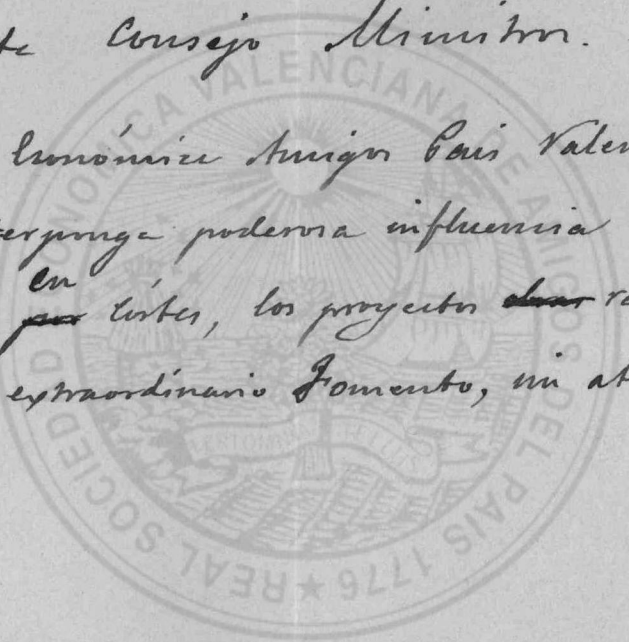 te Consejo Ministros.
Económica Amigos Pais Valen
terponga poderosa influencia
en
por Córtes, los proyectos
extraordinario Fomento, sin at
REAL SOCIEDAD ECONOMICA VALENCIANA DE AMIGOS DEL PAIS 1776 ★